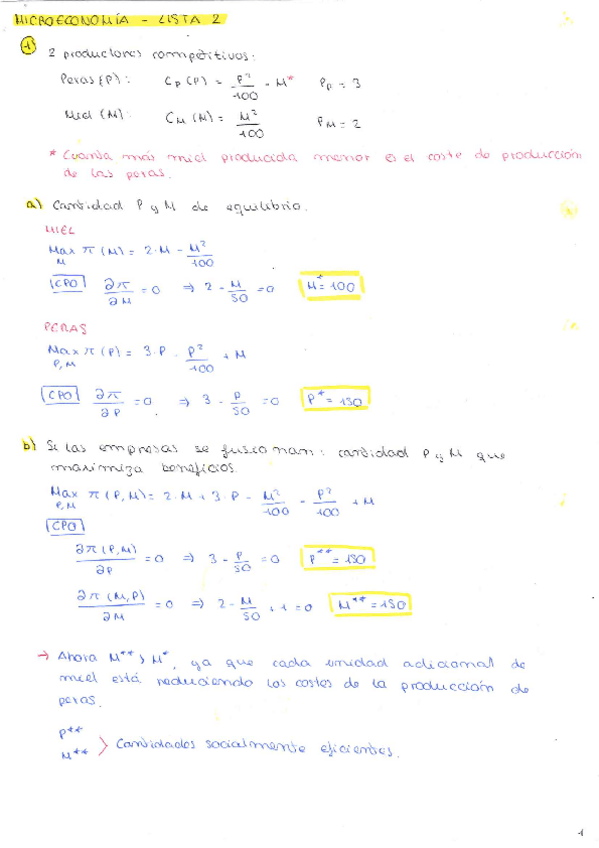 MICROECONOMÍA - LISTA 2
1 2 productores competitivos:
Peras (P): Cp (P) = P²/100 - M* Pp = 3
Miel (M): CM (M) = M²/100 PM = 2
* Cuanta más miel producida menor es el coste de producción
de las peras.
a) Cantidad P y M de equilibrio.
MIEL
Max π (M) = 2·M - M²/100
M
CPO ∂π/∂M = 0 ⇒ 2 - M/50 = 0 M* = 100
PERAS
Max π (P) = 3·P - P²/100 + M
P,M
CPO ∂π/∂P = 0 ⇒ 3 - P/50 = 0 P* = 150
b) Si las empresas se fusionan: cantidad P y M que
maximiza beneficios.
Max π (P,M) = 2·M + 3·P - M²/100 - P²/100 + M
P,M
CPO
∂π (P,M)/∂P = 0 ⇒ 3 - P/50 = 0 P** = 150
∂π (M,P)/∂M = 0 ⇒ 2 - M/50 + 1 = 0 M** = 150
→ Ahora M** > M*, ya que cada unidad adicional de
miel está reduciendo los costes de la producción de
peras.
P**
M** > Cantidades socialmente eficientes.
1